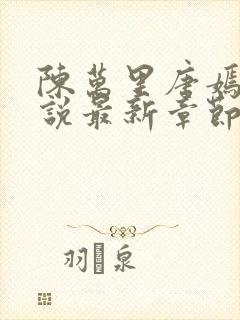 陳萬里唐嫣
說最新章節
羽 泉